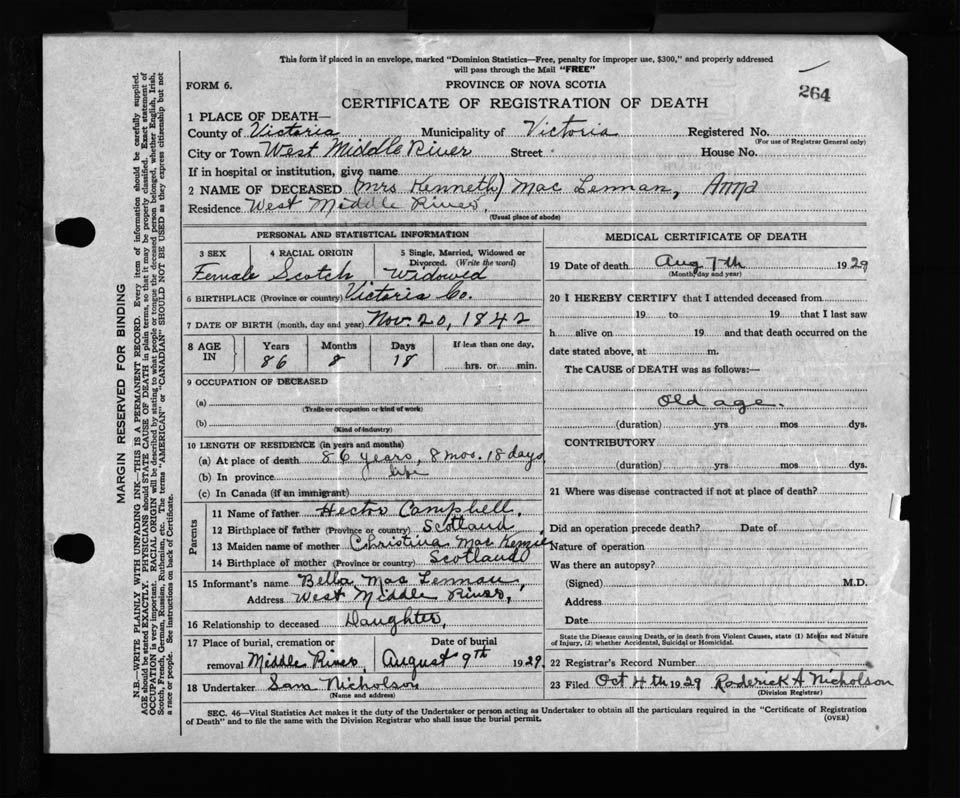 This form if placed in an envelope, marked "Dominion Statistics—Free, penalty for improper use, $300," and properly addressed
will pass through the Mail "FREE"
264
FORM 6.
PROVINCE OF NOVA SCOTIA
CERTIFICATE OF REGISTRATION OF DEATH
1 PLACE OF DEATH—
County of Victoria Municipality of Victoria Registered No.
(For use of Registrar General only)
City or Town West Middle River Street House No.
If in hospital or institution, give name
2 NAME OF DECEASED (Mrs Kenneth) Mac Lennan, Anna
Residence West Middle River,
(Usual place of abode)
PERSONAL AND STATISTICAL INFORMATION
3 SEX 4 RACIAL ORIGIN 5 Single, Married, Widowed or Divorced. (Write the word)
Female Scotch Widowed
6 BIRTHPLACE (Province or country) Victoria Co.
7 DATE OF BIRTH (month, day and year) Nov. 20, 1842
8 AGE IN Years Months Days If less than one day,
86 8 18 hrs. or min.
9 OCCUPATION OF DECEASED
(a)
(Trade or occupation or kind of work)
(b)
(Kind of industry)
10 LENGTH OF RESIDENCE (in years and months)
(a) At place of death 86 years, 8 mos. 18 days
(b) In province life
(c) In Canada (if an immigrant)
Parents
11 Name of father Hector Campbell,
12 Birthplace of father (Province or country) Scotland
13 Maiden name of mother Christina Mac Kenzie
14 Birthplace of mother (Province or country) Scotland
15 Informant's name Bella Mac Lennan,
Address West Middle River,
16 Relationship to deceased Daughter,
17 Place of burial, cremation or Date of burial
removal Middle River August 9th 1929.
18 Undertaker Sam Nicholson
(Name and address)
MEDICAL CERTIFICATE OF DEATH
19 Date of death Aug 7th 1929
(Month, day and year)
20 I HEREBY CERTIFY that I attended deceased from
19 to 19 that I last saw
h alive on 19 and that death occurred on the
date stated above, at m.
The CAUSE of DEATH was as follows:—
Old age.
(duration) yrs mos dys.
CONTRIBUTORY
(duration) yrs mos dys.
21 Where was disease contracted if not at place of death?
Did an operation precede death? Date of
Nature of operation
Was there an autopsy?
(Signed) M.D.
Address
Date
State the Disease causing Death, or in death from Violent Causes, state (1) Means and Nature
of Injury, (2) whether Accidental, Suicidal or Homicidal.
22 Registrar's Record Number
23 Filed Oct 4th 1929 Roderick A Nicholson
(Division Registrar)
SEC. 46—Vital Statistics Act makes it the duty of the Undertaker or person acting as Undertaker to obtain all the particulars required in the "Certificate of Registration
of Death" and to file the same with the Division Registrar who shall issue the burial permit.
(OVER)
MARGIN RESERVED FOR BINDING
N.B.—WRITE PLAINLY WITH UNFADING INK—THIS IS A PERMANENT RECORD. Every item of information should be carefully supplied.
AGE should be stated EXACTLY. PHYSICIANS should STATE CAUSE OF DEATH in plain terms, so that it may be properly classified. Exact statement of
OCCUPATION is very important. RACIAL ORIGIN will be described by stating to what people or tongue the deceased person belonged, whether English, Irish,
Scotch, French, German, Russian, Ruthenian, etc. The terms "AMERICAN" or "CANADIAN" SHOULD NOT BE USED as they express citizenship but not
a race or people. See instructions on back of Certificate.